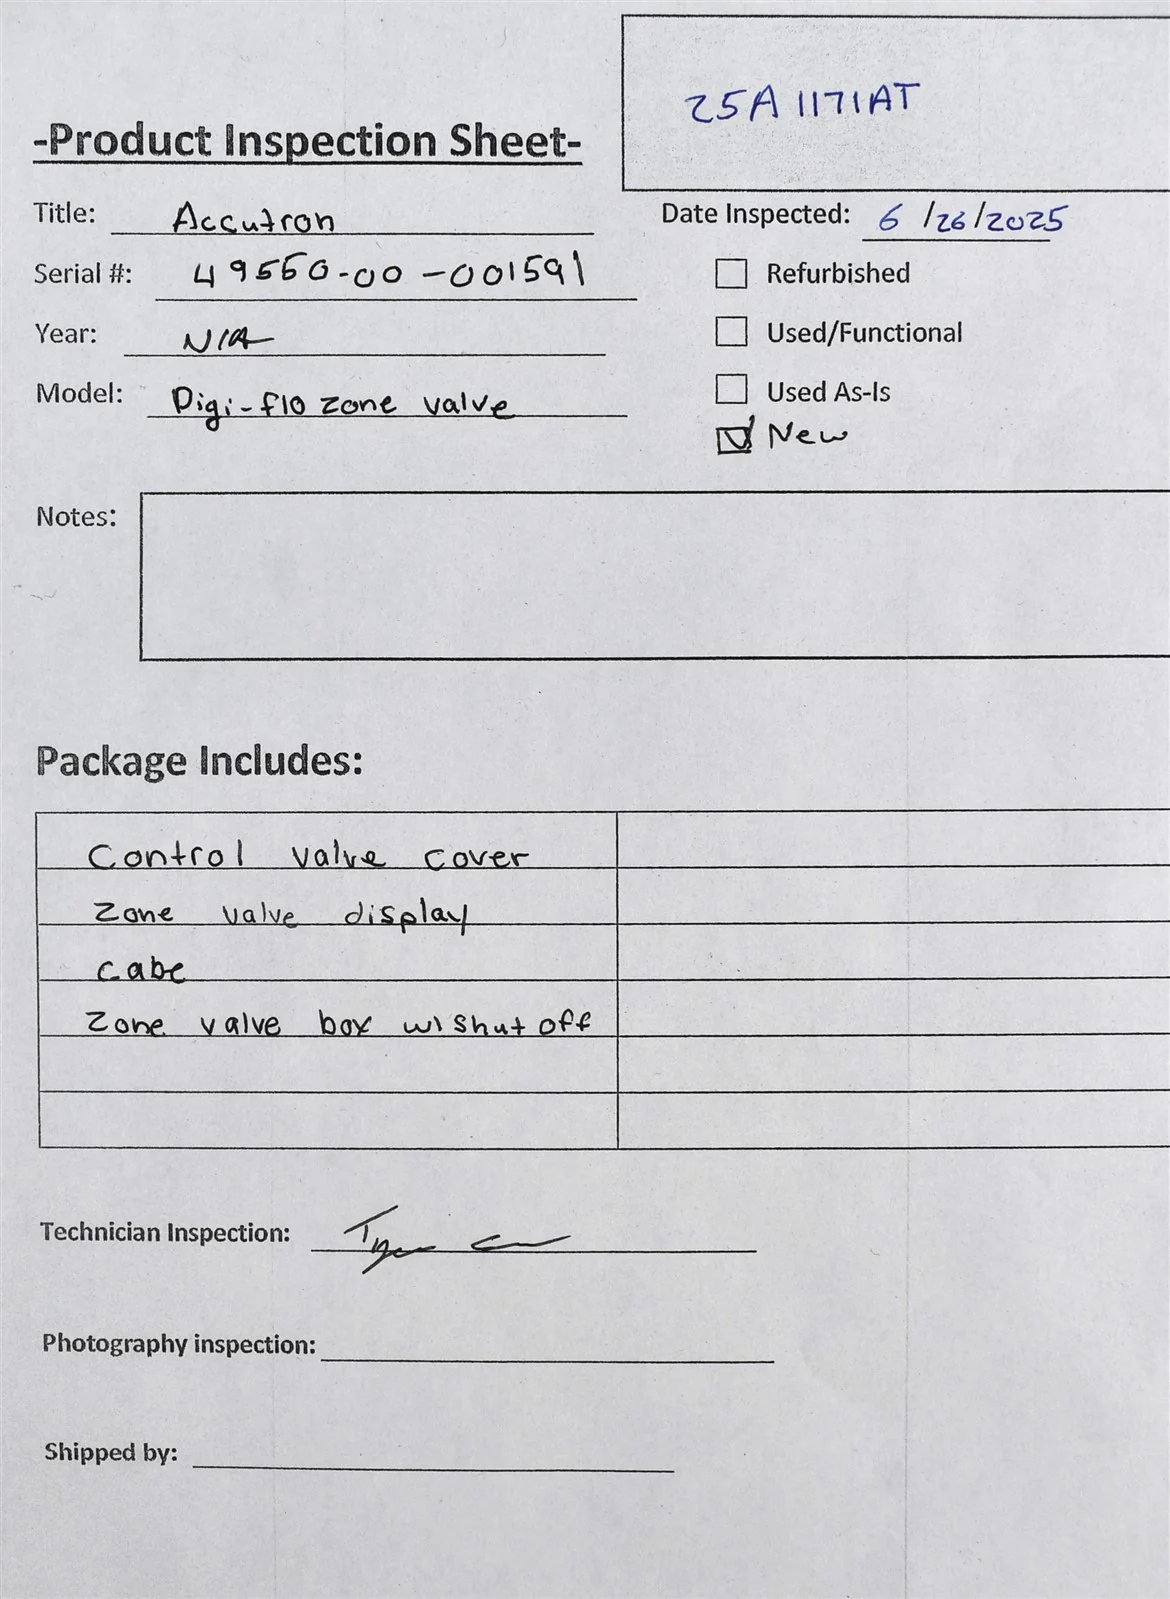 25A 1171AT
-Product Inspection Sheet-
Title: Accutron
Date Inspected: 6/26/2025
Serial #: 49550-00-001591
Refurbished
Year: N/A
Used/Functional
Model: Digi-flo zone valve
Used As-Is
New
Notes:
Package Includes:
Control valve cover
Zone valve display
cabe
Zone valve box w/shut off
Technician Inspection:
Photography inspection:
Shipped by: